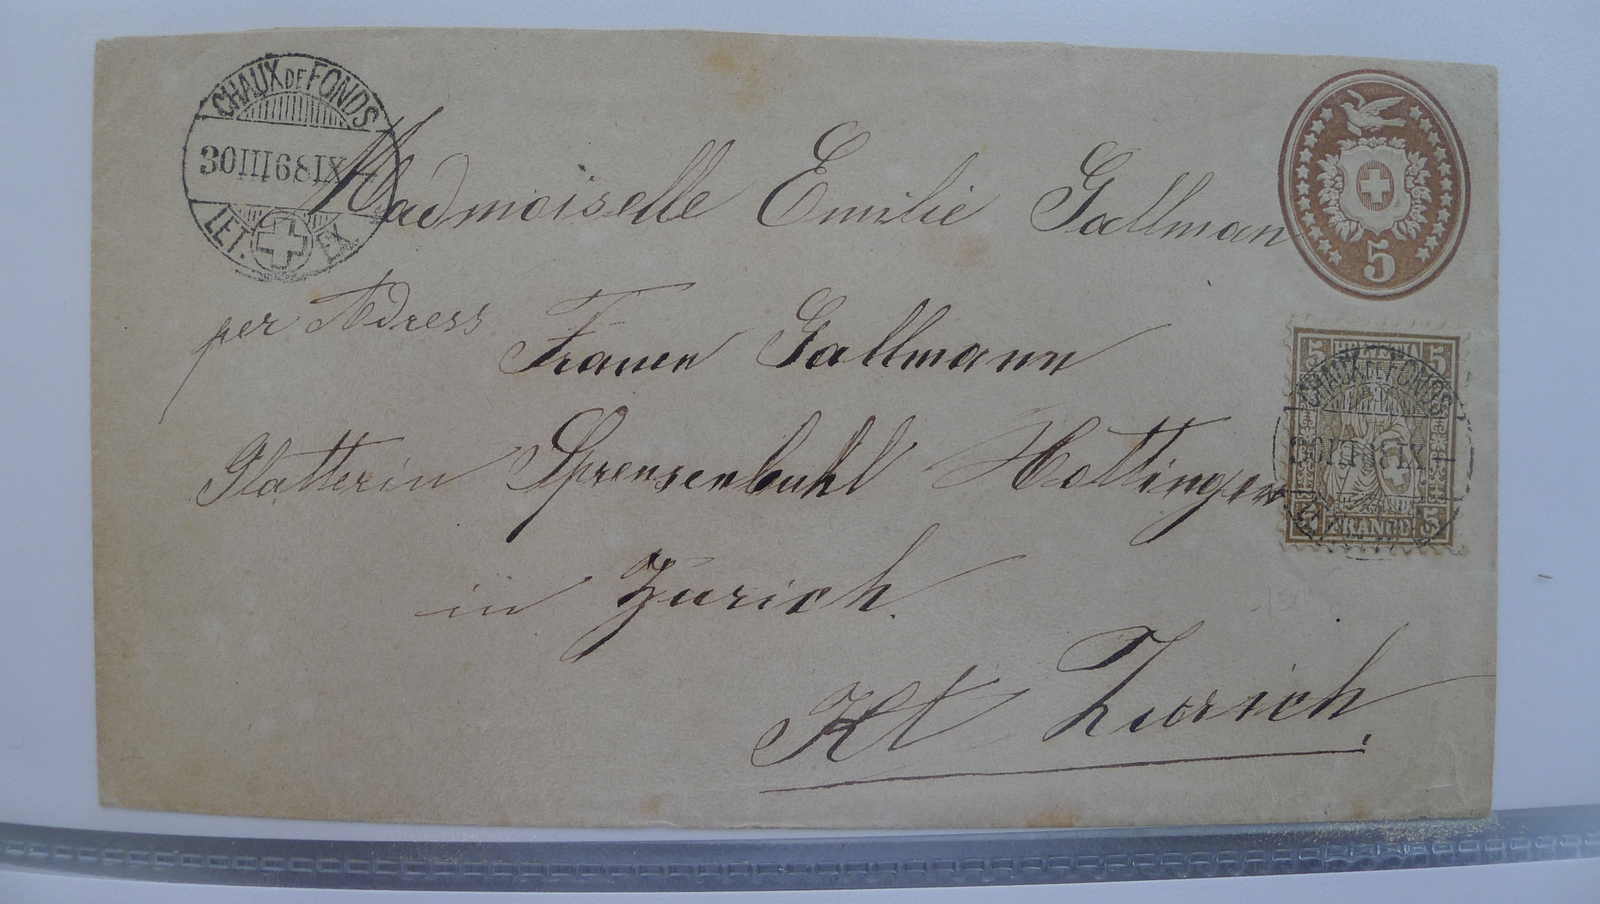 CHAUX DE FONDS
30 III 68 IX
LET. EX
5
Mademoiselle Emilie Gallman
per Adress Frauen Gallmann
5 HELVETIA 5
CHAUX DE FONDS
30 III 68 IX
5 FRANCO 5
Glatterin Sprensenbuhl Hottingen
in Zurich
Kt Zurich.